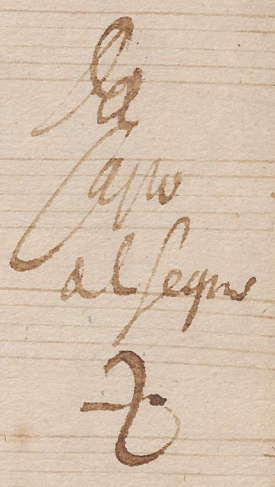 Da
Capo
al Segno